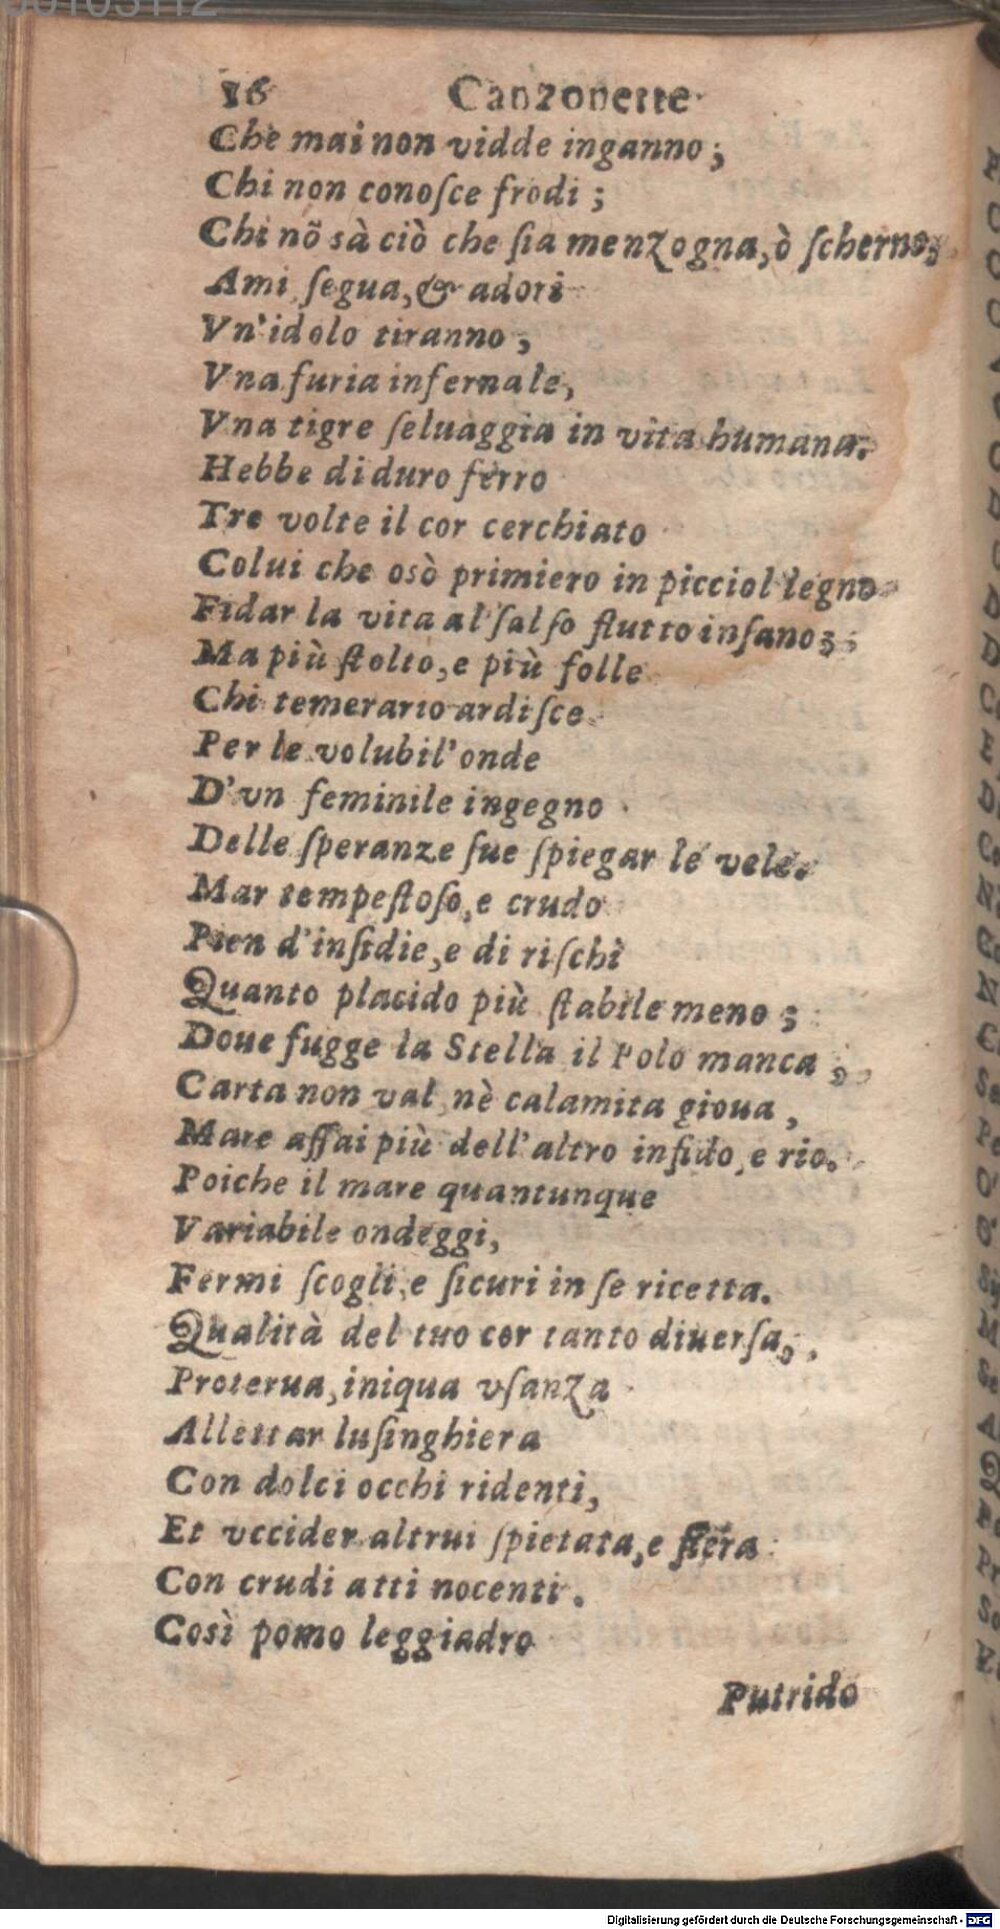 16 Canzonette
Che mai non vidde inganno;
Chi non conoſce frodi;
Chi nõ sà ciò che ſia menzogna, ò ſcherno;
Ami, ſegua, & adori
Vn'idolo tiranno;
Vna furia infernale,
Vna tigre ſeluaggia in vita humana.
Hebbe di duro ferro
Tre volte il cor cerchiato
Colui che osò primiero in picciol legno
Fidar la vita al ſalſo flutto inſano;
Ma più ſtolto, e più folle
Chi temerario ardiſce
Per le volubil'onde
D'vn feminile ingegno
Delle ſperanze ſue ſpiegar le vele.
Mar tempeſtoſo, e crudo
Pien d'inſidie, e di riſchi
Quanto placido più ſtabile meno;
Doue fugge la Stella il Polo manca;
Carta non val, nè calamita gioua,
Mare aſſai più dell'altro infido, e rio.
Poiche il mare quantunque
Variabile ondeggi,
Fermi ſcogli, e ſicuri in ſe ricetta.
Qualità del tuo cor tanto diuerſa,
Proterua, iniqua vſanza
Allettar luſinghiera
Con dolci occhi ridenti,
Et vccider altrui ſpietata, e fiera
Con crudi atti nocenti.
Così pomo leggiadro
Putrido
Digitalisierung gefördert durch die Deutsche Forschungsgemeinschaft - DFG